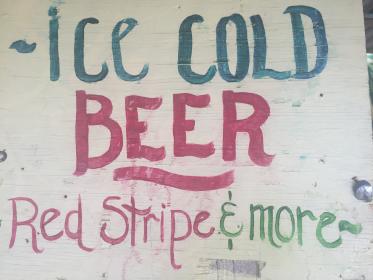 ~Ice COLD
BEER
Red Stripe & more~